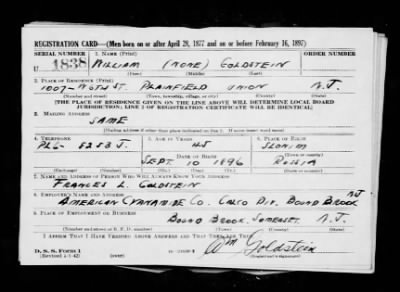 REGISTRATION CARD—(Men born on or after April 28, 1877 and on or before February 16, 1897)
SERIAL NUMBER 1. NAME (Print) ORDER NUMBER
U 1838 WILLIAM (NONE) GOLDSTEIN
(First) (Middle) (Last)
2. PLACE OF RESIDENCE (Print)
1007 - ST. PLAINFIELD UNION N.J.
(Number and street) (Town, township, village, or city) (County) (State)
[THE PLACE OF RESIDENCE GIVEN ON THE LINE ABOVE WILL DETERMINE LOCAL BOARD
JURISDICTION; LINE 2 OF REGISTRATION CERTIFICATE WILL BE IDENTICAL]
3. MAILING ADDRESS
SAME
(Mailing address if other than place indicated on line 2. If same insert word same)
4. TELEPHONE 5. AGE IN YEARS 6. PLACE OF BIRTH
PL6- 5253J. 45 SLONIM
(Town or county)
DATE OF BIRTH
SEPT 10 1896 RUSSIA
(Exchange) (Number) (Mo.) (Day) (Yr.) (State or country)
7. NAME AND ADDRESS OF PERSON WHO WILL ALWAYS KNOW YOUR ADDRESS
FRANCES L. GOLDSTEIN
8. EMPLOYER'S NAME AND ADDRESS
AMERICAN CYANAMIDE CO. CALCO DIV. BOUND BROOK NJ
9. PLACE OF EMPLOYMENT OR BUSINESS
BOUND BROOK, SOMERSET, N.J.
(Number and street or R. F. D. number) (Town) (County) (State)
I AFFIRM THAT I HAVE VERIFIED ABOVE ANSWERS AND THAT THEY ARE TRUE.
D. S. S. Form 1
(Revised 4-1-42) (over)
Wm Goldstein
(Registrant's signature)